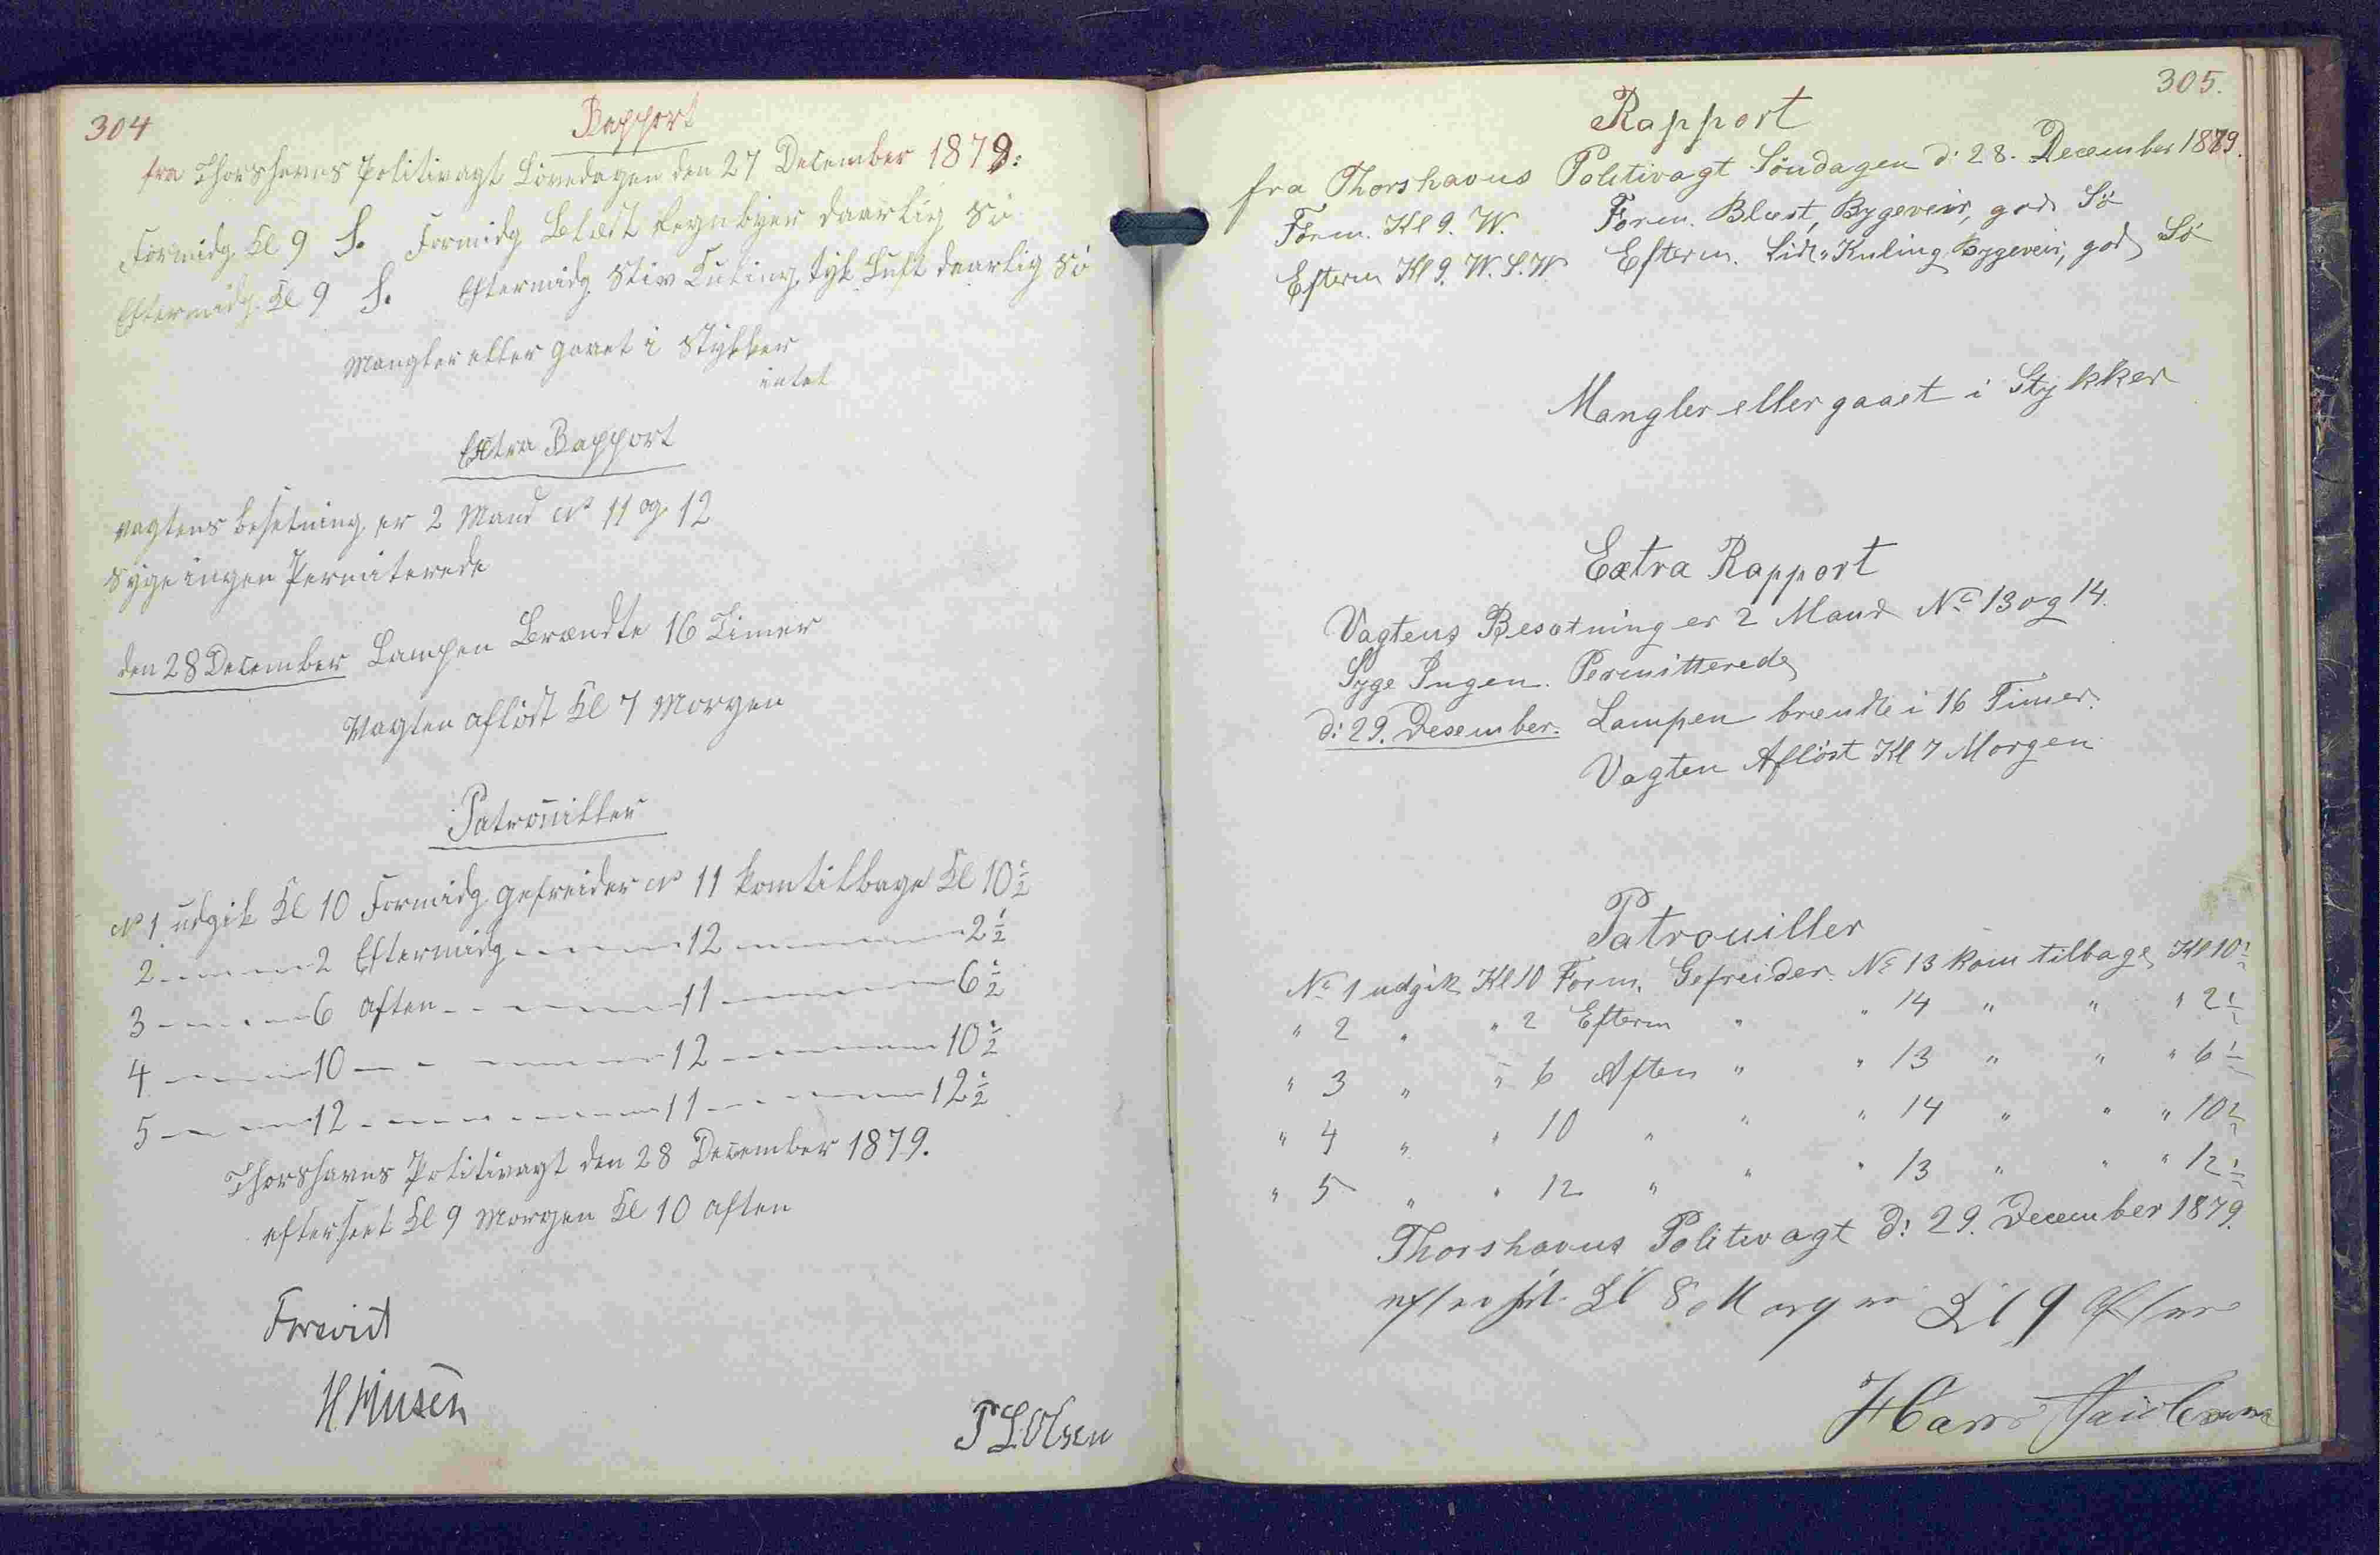 304
Rapport
fra Thorshavns Politivagt Löverdagen den 27 December 1879:
Formidg. Kl 9 S. Formidg Blæst Regnbyer daarlig Sö
Eftermidg. Kl 9 S. Eftermidg Stiv Kuling, tyk Luft daarlig Sö
Mangler eller gaaet i Stykker
intet
Extra Rapport
Vagtens besetning er 2 Mand No 11 og 12
Syge ingen Permiterede
den 28 December Lampen Brændte 16 Timer
Vagten aflöst Kl 7 Morgen
Patrouiller
No 1 udgik Kl 10 Formidg Gefreider No 11 kom tilbage Kl 10½
2 — — 2 Eftermidg — — 12 — — 2½
3 — — 6 Aften — — 11 — — 6½
4 — — 10 — — — 12 — — 10½
5 — — 12 — — — 11 — — 12½
Thorshavns Politivagt den 28 December 1879.
efterseet Kl 9 Morgen Kl 10 Aften
Forevist
P L Olsen
305.
Rapport
fra Thorshavns Politivagt Söndagen d: 28. December 1879.
Form. Kl 9. W. Form. Blæst, Bygeveir, god Sö
Efterm Kl 9. W.S.W. Efterm. Lidt Kuling Bygeveir, god Sö
Mangler eller gaaet i Stykker
Extra Rapport
Vagtens Besætning er 2 Mand No 13 og 14.
Syge Ingen. Permitterede
d: 29. Desember. Lampen brændte i 16 Timer.
Vagten Aflöst Kl 7 Morgen
Patrouiller
No 1 udgik Kl 10 Form. Gefreider No 13 kom tilbage Kl 10½
" 2 " " 2 Efterm " " 14 " " " 2½
" 3 " " 6 Aften " " 13 " " " 6½
" 4 " " 10 " " " 14 " " " 10½
" 5 " " 12 " " " 13 " " " 12½
Thorshavns Politivagt d: 29. December 1879.
efterset Kl 8 Morgen Kl 9 Aften